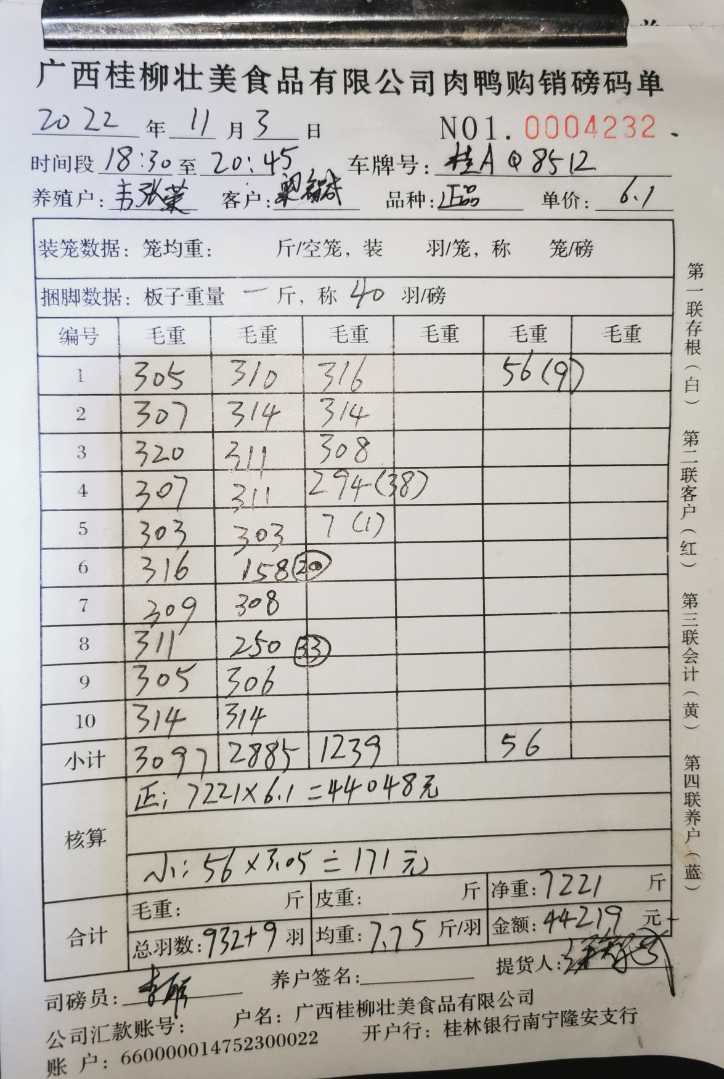 广西桂柳壮美食品有限公司肉鸭购销磅码单
2022 年 11 月 3 日 NO1. 0004232
时间段 18:30 至 20:45 车牌号: 桂A Q8512
养殖户: 客户: 品种: 正品 单价: 6.1
装笼数据: 笼均重: 斤/空笼, 装 羽/笼, 称 笼/磅
捆脚数据: 板子重量 一 斤, 称 40 羽/磅
编号 毛重 毛重 毛重 毛重 毛重 毛重
1 305 310 316 56(9)
2 307 314 314
3 320 311 308
4 307 311 294(38)
5 303 303 7(1)
6 316 158(20)
7 309 308
8 311 250(33)
9 305 306
10 314 314
小计 3097 2885 1239 56
核算
正: 7221×6.1=44048元
小: 56×3.05=171元
合计
毛重: 斤 皮重: 斤 净重: 7221 斤
总羽数: 932+9 羽 均重: 7.75 斤/羽 金额: 44219 元
司磅员: 养户签名: 提货人:
公司汇款账号: 户名: 广西桂柳壮美食品有限公司
账 户: 660000014752300022 开户行: 桂林银行南宁隆安支行
第一联存根(白) 第二联客户(红) 第三联会计(黄) 第四联养户(蓝)